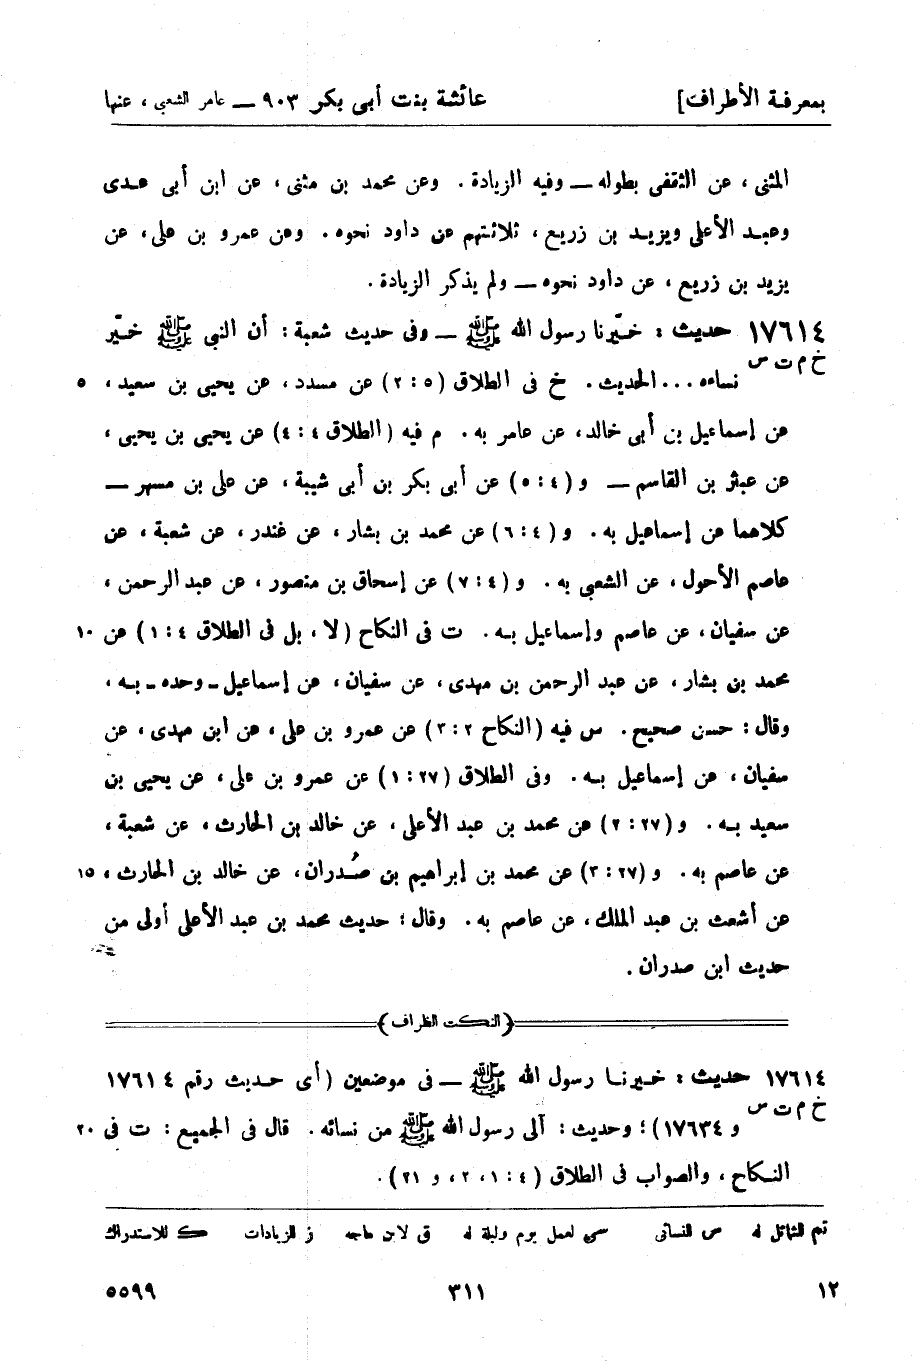 بمعرفة الأطراف] عائشة بنت أبى بكر ٩٠٣ — عامر الشعبي ، عنها
المثنى ، عن الثقفى بطوله — وفيه الزيادة . وعن محمد بن مثنى ، عن ابن أبى عدى
وعبد الأعلى ويزيد بن زريع ، ثلاثتهم عن داود نحوه . وعن عمرو بن على ، عن
يزيد بن زريع ، عن داود نحوه — ولم يذكر الزيادة .
١٧٦١٤ حديث : خيّرنا رسول الله ﷺ — وفى حديث شعبة : أن النبي ﷺ خيّر
خ م ت س نساءه ... الحديث . خ فى الطلاق (٥ : ٢) عن مسدد ، عن يحيى بن سعيد ، ٥
عن إسماعيل بن أبى خالد ، عن عامر به . م فيه (الطلاق ٤ : ٤) عن يحيى بن يحيى ،
عن عبثر بن القاسم — و (٤ : ٥) عن أبى بكر بن أبى شيبة ، عن على بن مسهر —
كلاهما عن إسماعيل به . و (٤ : ٦) عن محمد بن بشار ، عن غندر ، عن شعبة ، عن
عاصم الأحول ، عن الشعبى به . و (٤ : ٧) عن إسحاق بن منصور ، عن عبد الرحمن ،
عن سفيان ، عن عاصم وإسماعيل به . ت فى النكاح (لا ، بل فى الطلاق ٤ : ١) عن ١٠
محمد بن بشار ، عن عبد الرحمن بن مهدى ، عن سفيان ، عن إسماعيل - وحده - به ،
وقال : حسن صحيح . س فيه (النكاح ٢ : ٣) عن عمرو بن على ، عن ابن مهدى ، عن
سفيان ، عن إسماعيل به . وفى الطلاق (٢٧ : ١) عن عمرو بن على ، عن يحيى بن
سعيد به . و (٢٧ : ٢) عن محمد بن عبد الأعلى ، عن خالد بن الحارث ، عن شعبة ،
عن عاصم به . و (٢٧ : ٣) عن محمد بن إبراهيم بن صُدران ، عن خالد بن الحارث ، ١٥
عن أشعث بن عبد الملك ، عن عاصم به . وقال : حديث محمد بن عبد الأعلى أولى من
حديث ابن صدران .
(النكت الظراف)
١٧٦١٤ حديث : خيرنا رسول الله ﷺ — فى موضعين (أى حديث رقم ١٧٦١٤
خ م ت س و ١٧٦٣٤) ؛ وحديث : آلى رسول الله ﷺ من نسائه . قال فى الجميع : ت فى ٢٠
النكاح ، والصواب فى الطلاق (٤ : ١ ، ٢ ، و ٢١) .
تم للشمائل له س للنسائى سى لعمل يوم وليلة له ق لابن ماجه ز للزيادات ك للاستدراك
١٢ ٣١١ ٥٥٩٩